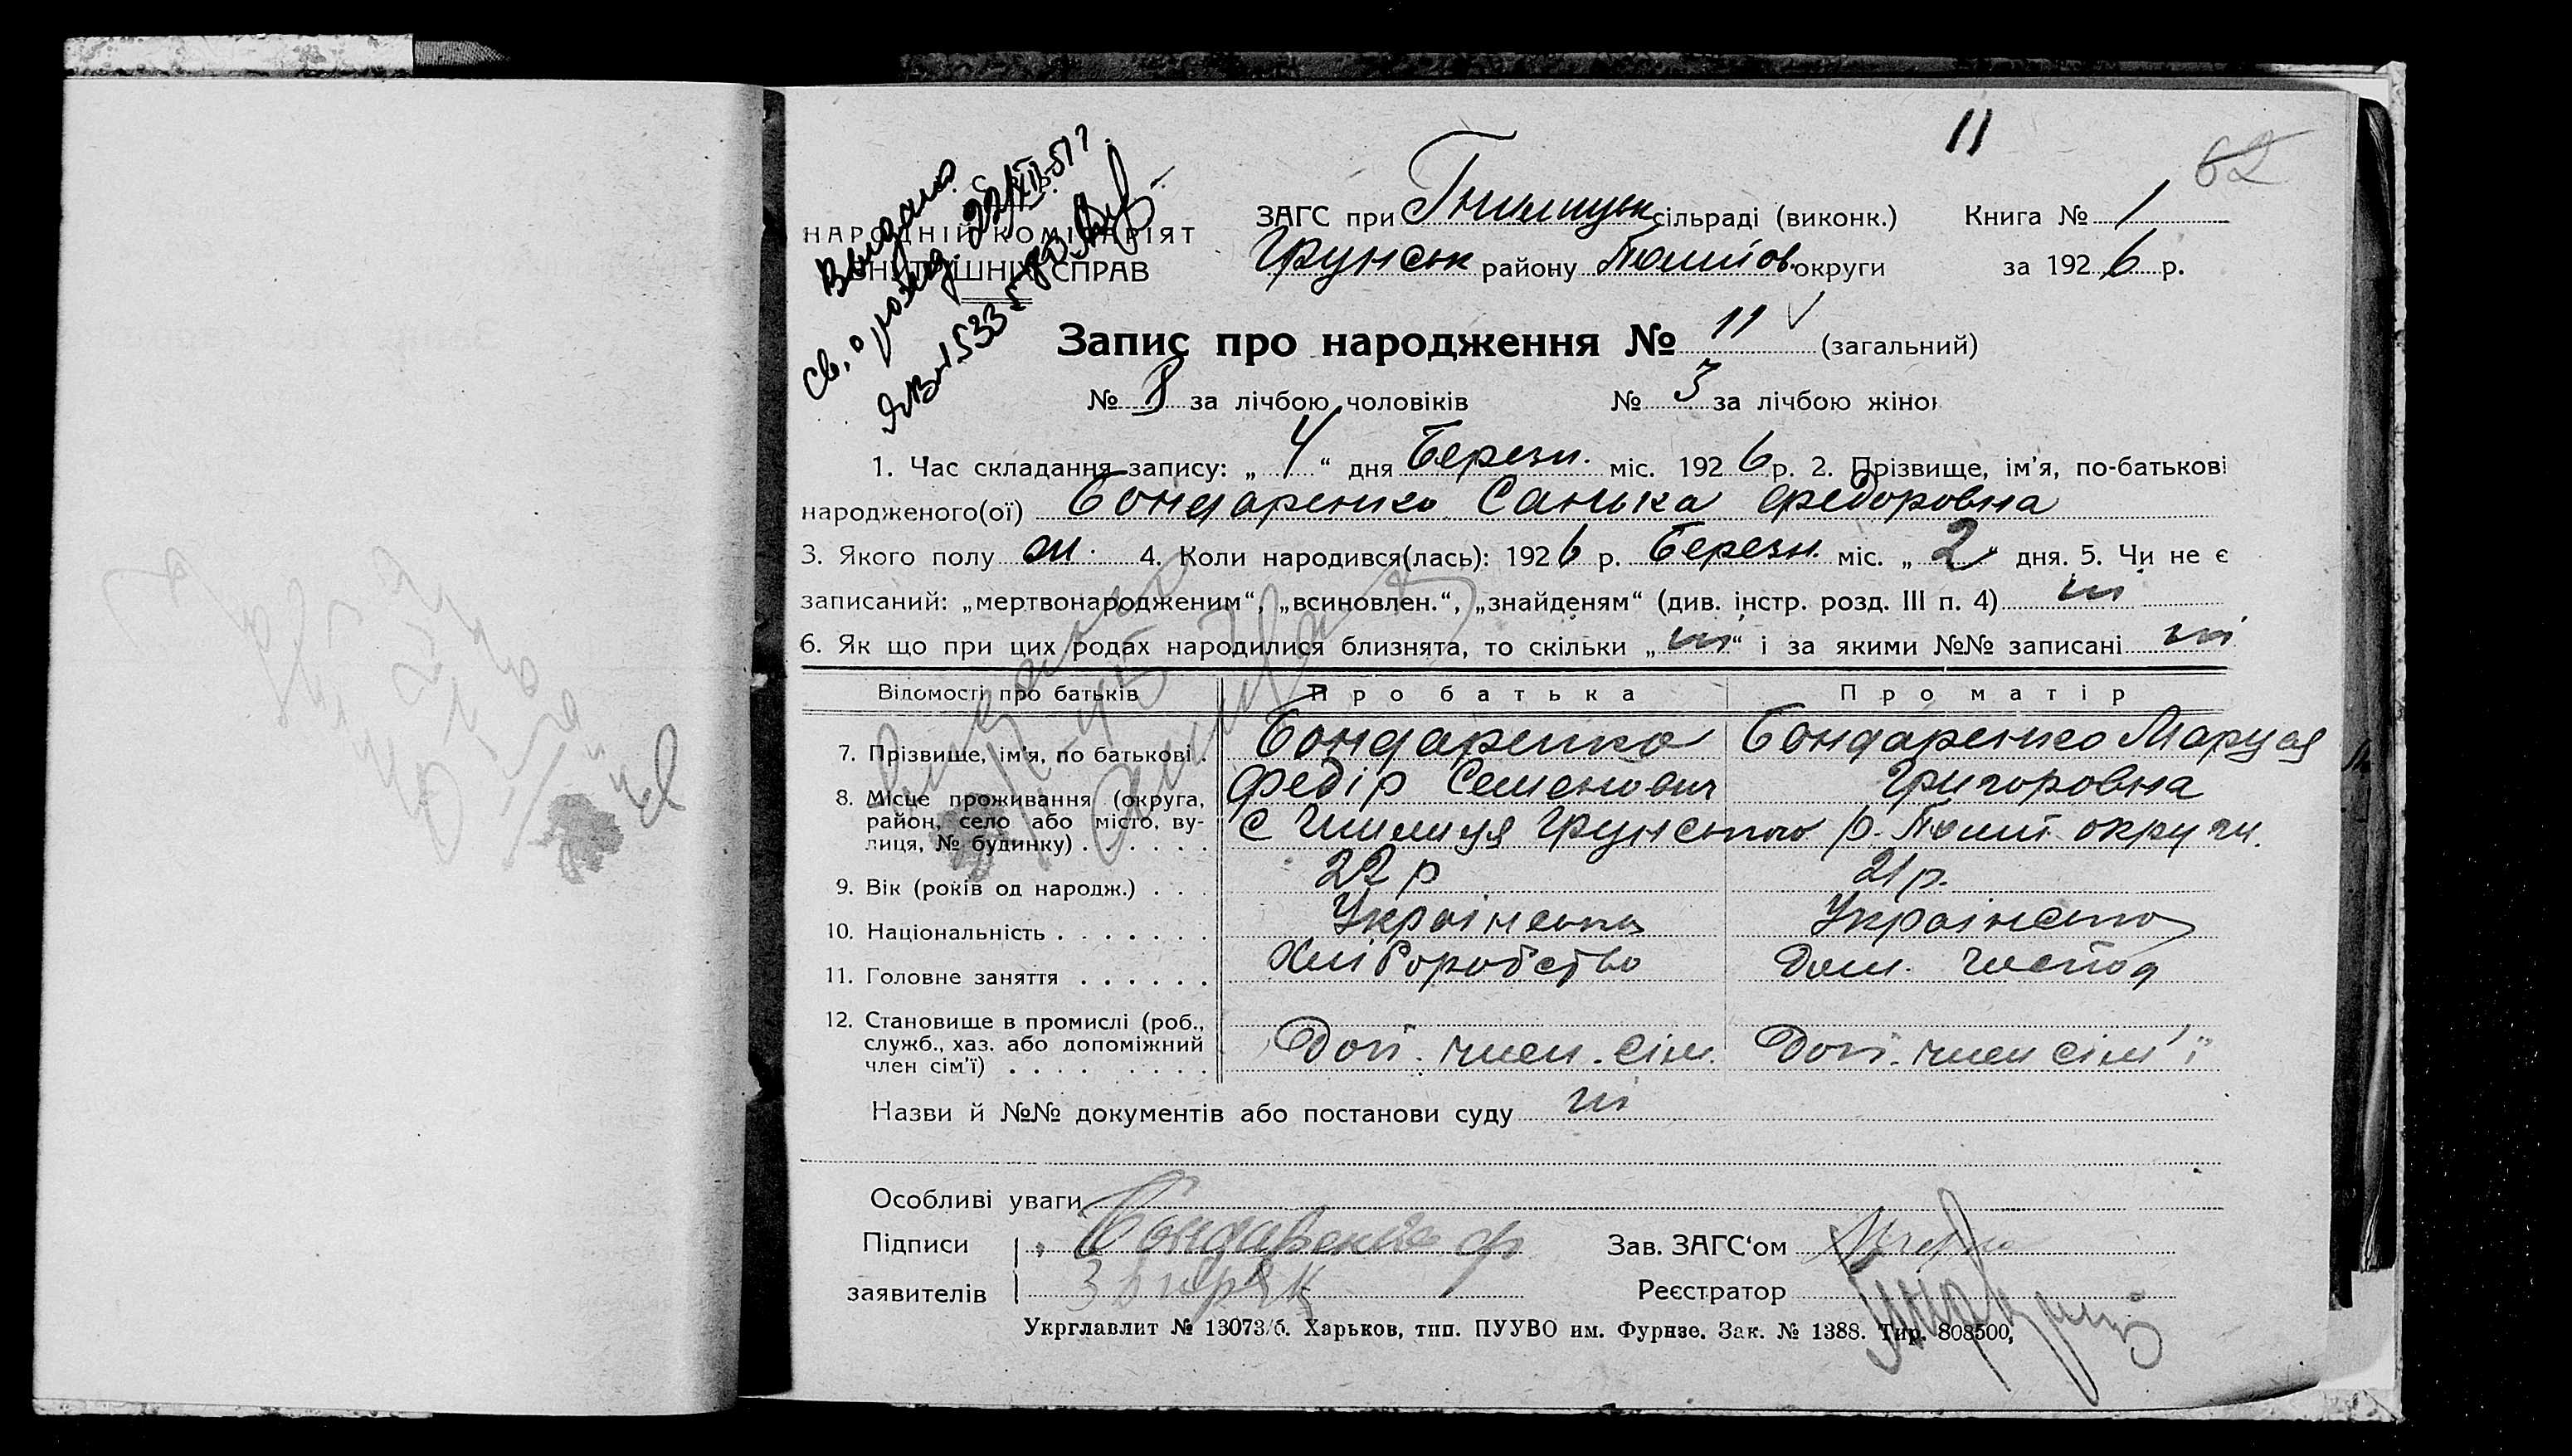 11
62
Видано
св. о рожд. 22/XII-51 г.
ЯВ-153
НАРОДНІЙ КОМІСАРІЯТ
ВНУТРІШНІХ СПРАВ
ЗАГС при Гнилицьк сільраді (виконк.) Книга № 1
Грунськ району Полтов. округи за 1926 р.
Запис про народження № 11 (загальний)
№ 8 за лічбою чоловіків № 3 за лічбою жіно
1. Час складання запису: „ 4 “ дня Березн. міс. 1926 р. 2. Прізвище, ім’я, по-батькові
народженого(ої) Бондаренко Санька Федоровна
3. Якого полу ж. 4. Коли народився(лась): 1926 р. Березн. міс. „ 2 “ дня. 5. Чи не є
записаний: „мертвонародженим“, „всиновлен.“, „знайденям“ (див. інстр. розд. III п. 4) ні
6. Як що при цих родах народилися близнята, то скільки „ ні “ і за якими №№ записані ні
Відомості про батьків Про батька Про матір
7. Прізвище, ім’я, по батькові. Бондаренко Бондаренко Маруся
Федір Семенович Григоровна
8. Місце проживання (округа,
район, село або місто, ву-
лиця, № будинку) . . . . . . с Гнилиця Грунського р. Полт. округи.
9. Вік (років од народж.) . . . 22 р 21 р.
10. Національність . . . . . . . Українська Українська
11. Головне заняття . . . . . . Хліборобство Дом. господ
12. Становище в промислі (роб.,
служб., хаз. або допоміжний
член сім’ї) . . . . . . . . Доп. член. сім. Доп. член сім’ї
Назви й №№ документів або постанови суду ні
Особливі уваги
Підписи Бондаренко Ф Зав. ЗАГС‘ом
заявителів Звиряк Реєстратор
Укрглавлит № 13073/б. Харьков, тип. ПУУВО им. Фурнзе. Зак. № 1388. Тир. 808500,